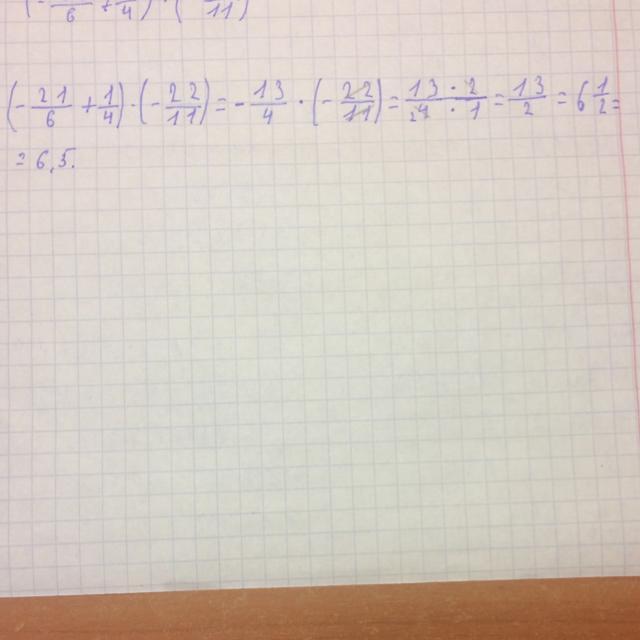 (-21/6 + 1/4) · (-22/11) = -13/4 · (-22/11) = 13 · 2/24 · 1 = 13/2 = 6 1/2 =
= 6,5.